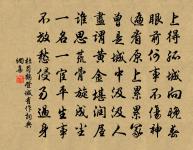 上得孤城向晚春
眼前何事不傷神
遍看原上累累冢
曾是城中汲汲人
盡謂黃金堪潤屋
誰思荒骨旋成塵
一名一宦平生事
不放愁侵易過身
杜荀鶴登城有作詞典
網集